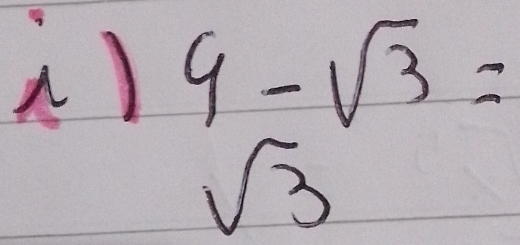 i) 9 - √3 =
√3